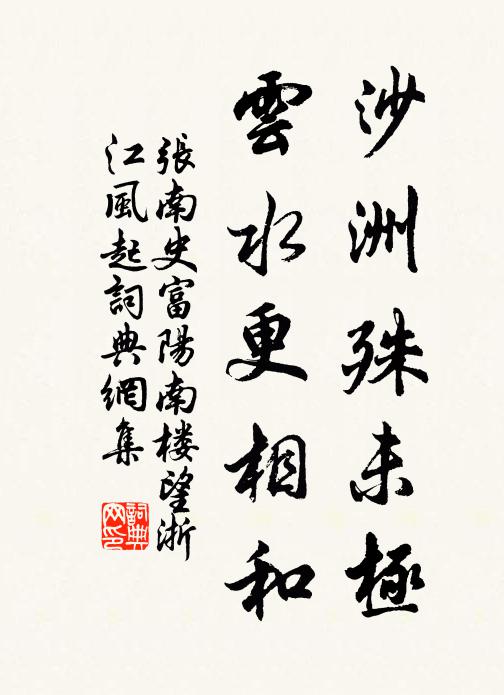 沙洲殊未極
雲水更相和
張南史富陽南楼望浙
江風起詞典網集
詞典
网印